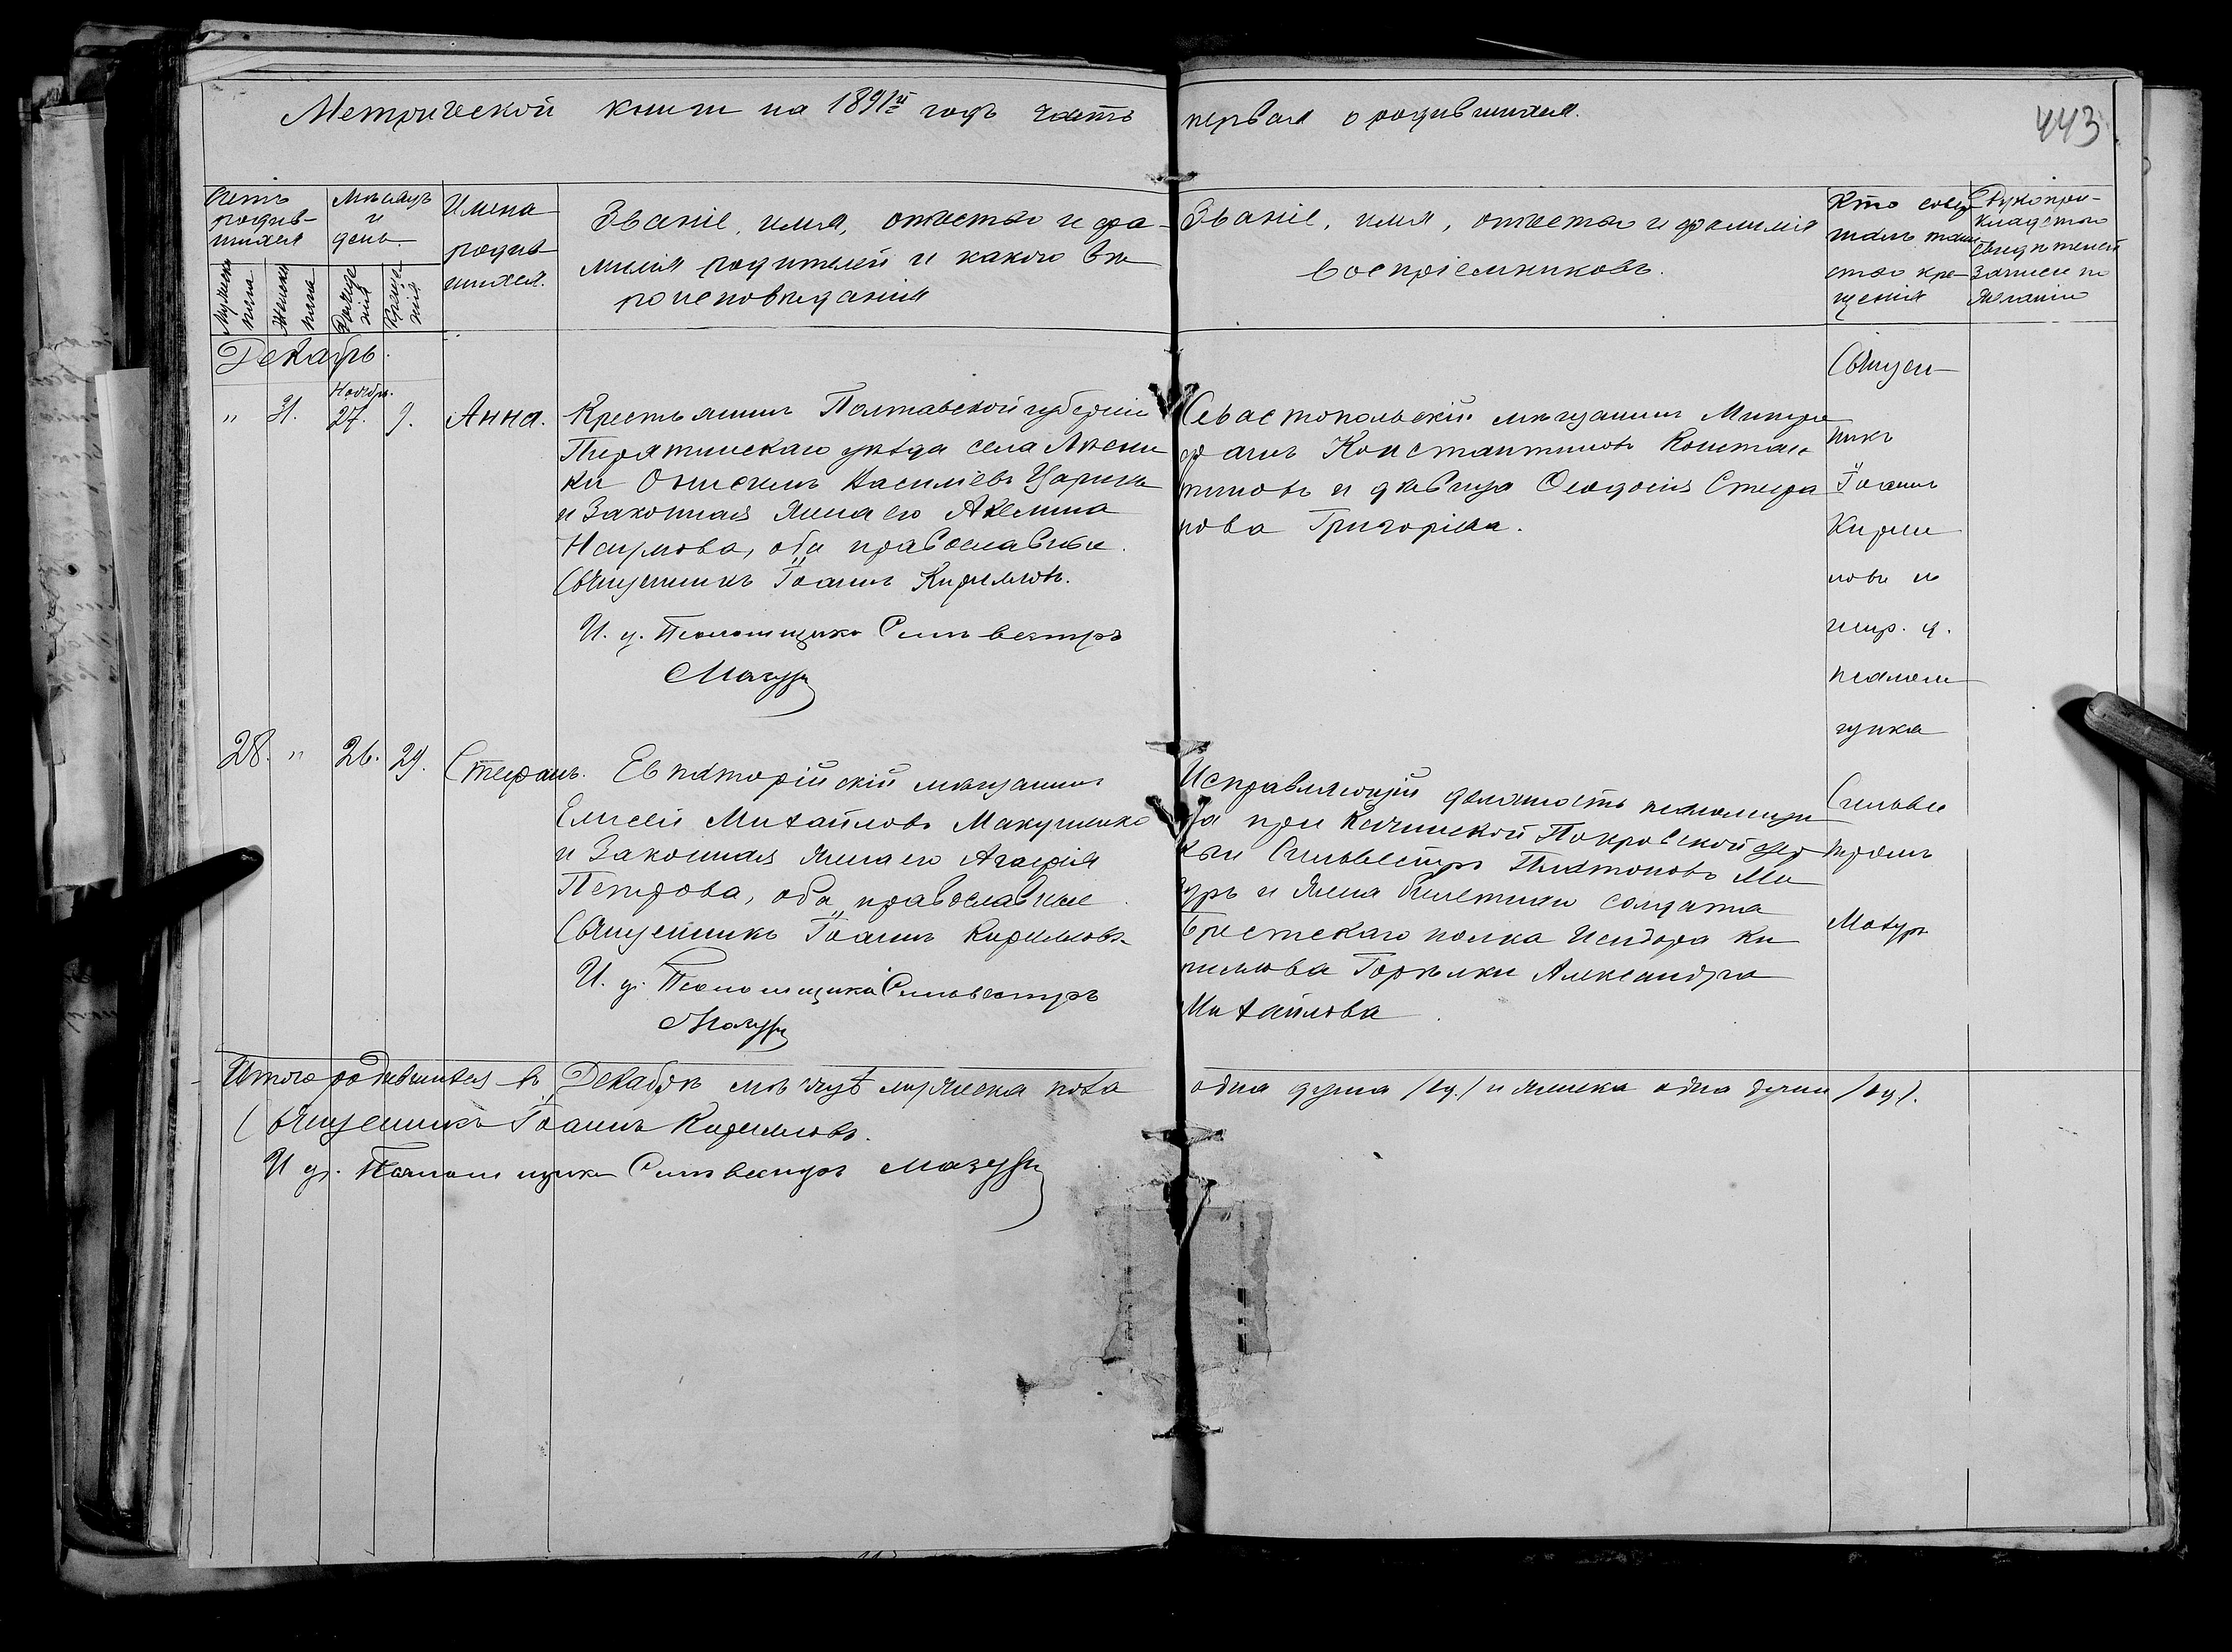 Метрической книги на 1891й годъ часть первая о родившихся.
443
Счетъ родив-
шихся
Мѣсяцъ
и
день.
Имена
родив-
шихся.
Званіе, имя, отчество и фа-
милія родителей и какого вѣ-
роисповѣданія
Званіе, имя, отчество и фамилія
воспріемниковъ.
Кто совер
шалъ таин
ство кре-
щенія
Рукопри-
кладство
свидѣтелей
записи по
желанію
Мужеска
пола
Женска
пола
Рожде
нія
Креще
нія
Декабрь.
" 31. Ноября. 27. 9. Анна.
Крестьянинъ Полтавской губерніи
Пирятинскаго уѣзда села
Онисимъ Васильевъ Царикъ
и законная жена его Акелина
Наумова, оба православные.
Священникъ Іоаннъ Кирилловъ.
И. д. Псаломщика Сильвестръ
Мазуръ
Севастопольскій мѣщанинъ Митро
фанъ Константиновъ Констан
тиновъ и дѣвица Ѳеодосія Стефа
нова Григорьева.
Священ-
никъ
Іоаннъ
Кирил
ловъ съ
испр. д.
псалом
щика
Сильве
стромъ
Мазуръ
28. " 26. 29. Стефанъ.
Евпаторійскій мѣщанинъ
Елисей Михайловъ Макушенко
и законная жена его Агафія
Петрова, оба православные.
Священникъ Іоаннъ Кирилловъ.
И. д. Псаломщика Сильвестръ
Мазуръ
Исправляющій должность псаломщи
ка при Качинской Покровской цер
кви Сильвестръ Платоновъ Ма
зуръ и жена билетнаго солдата
Брестскаго полка Исидора Ки
риллова Горѣлки Александра
Михайлова.
Итого родившихся въ Декабрѣ мѣсяцѣ мужеска пола одна душа /1д./ и женска одна душа /1д./.
Священникъ Іоаннъ Кирилловъ.
И д. Псаломщика Сильвестръ Мазуръ